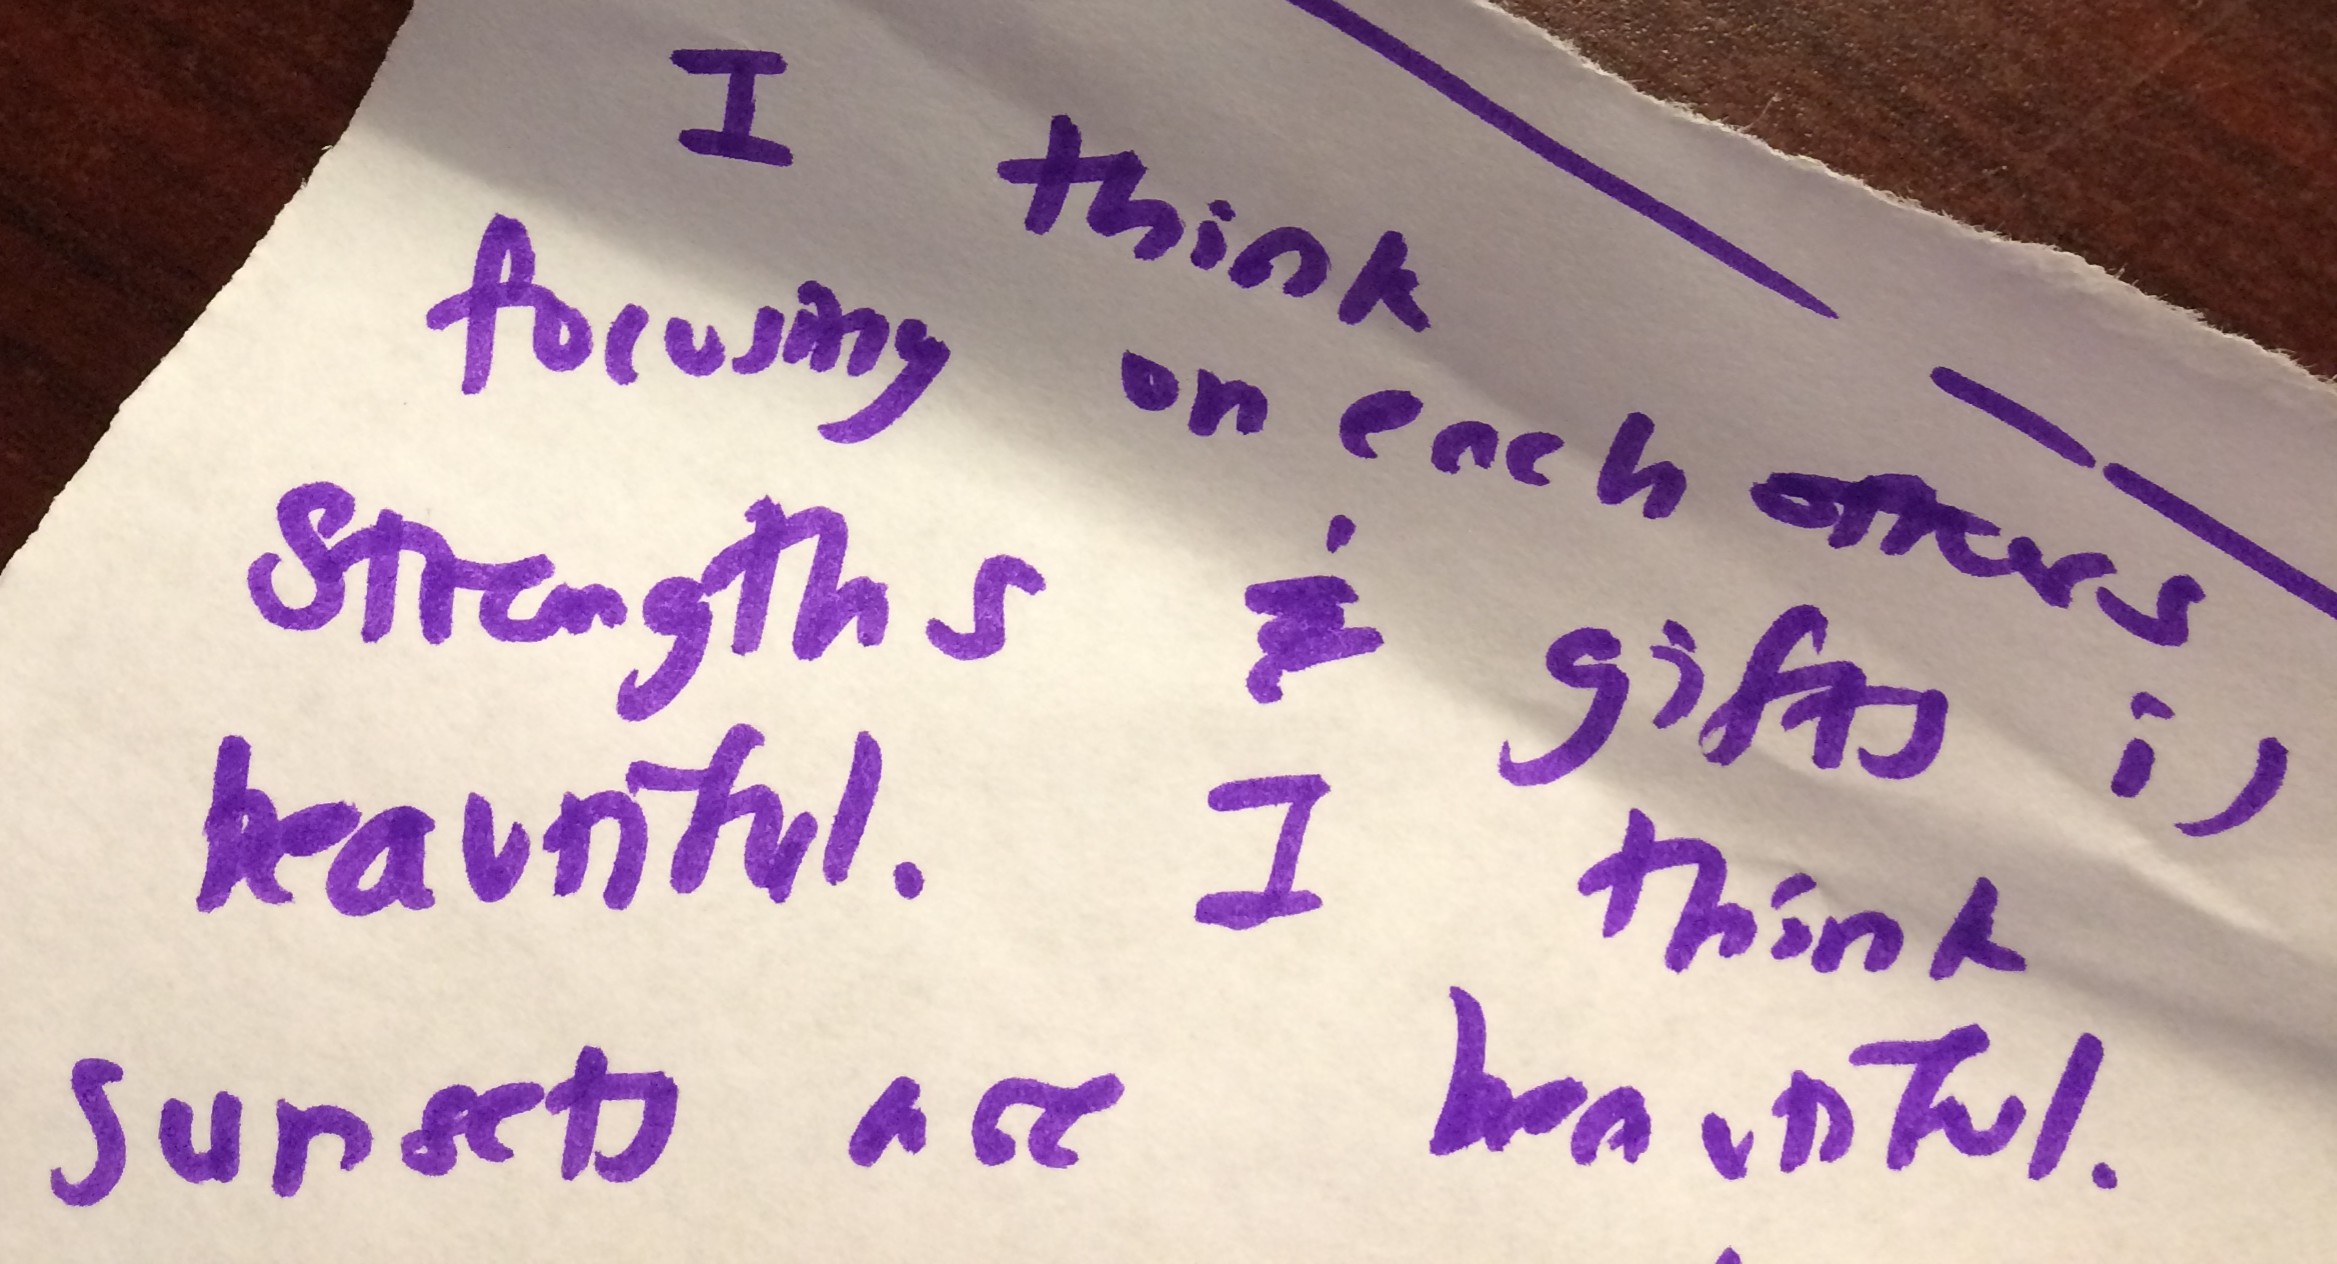 I think
focusing on each others
strengths & gifts is
beautiful. I think
sunsets are beautiful.